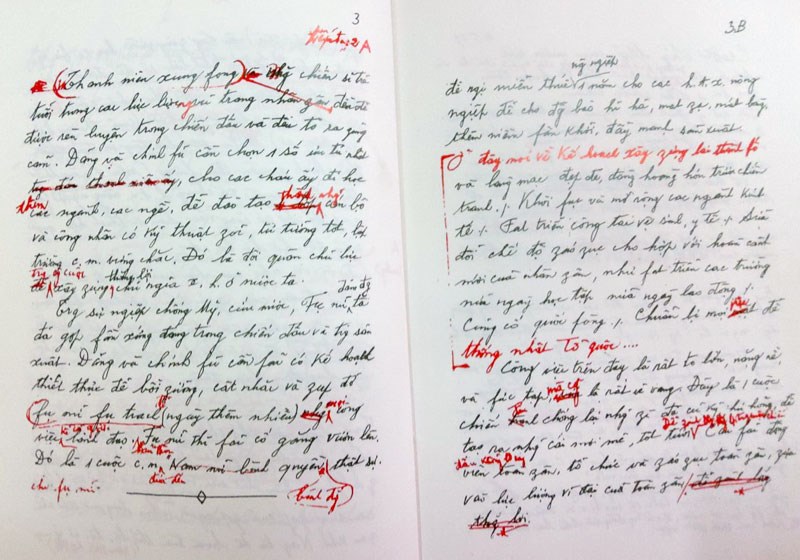 3
tiếp tr. 2 A
Thanh niên xung fong và chiến sĩ trẻ
tuổi trong các lực lượng vũ trang nhân zân đều đã
được rèn luyện trong chiến đấu và đều tỏ ra zũng
cảm. Đảng và chính fủ cần chọn 1 số ưu tú nhất
cho các cháu ấy đi học
thêm
các ngành, các ngề, để đào tạo những cán bộ
và công nhân có kỹ thuật zỏi, tư tưởng tốt, lập
trường c. m. vững chắc. Đó là đội quân chủ lực
trong công cuộc thắng lợi
để xây zựng chủ nghĩa x. h. ở nước ta.
đảm đang
Trong sự nghiệp chống Mỹ, cứu nước, Fụ nữ ta
đã góp fần xứng đáng trong chiến đấu và trong sản
xuất. Đảng và chính fủ cần fải có kế hoạch
thiết thực để bồi zưỡng, cất nhắc và zúp đỡ
fụ nữ fụ trách (ngày thêm nhiều) mọi công
việc
lãnh đạo. Fụ nữ thì fải cố gắng vươn lên.
Đó là 1 cuộc c. m. Nam nữ bình quyền thật sự
đưa đến
cho fụ nữ.
bình đẳng
3B
nông nghiệp
đề ngị miễn thuế 1 năm cho các h.t.x. nông
ngiệp để cho đồng bào hỉ hả, mát zạ, mát lòng,
thêm niềm fấn khởi, đẩy mạnh sản xuất.
đây mới về kế hoạch xây zựng lại thành fố
và làng mạc đẹp đẽ, đàng hoàng hơn trước chiến
tranh. / Khôi fục và mở rộng các ngành kinh
tế / Fát triển công tác vệ sinh, y tế / Sửa
đổi chế độ záo zục cho hợp với hoàn cảnh
mới của nhân zân, như fát triển các trường
nửa ngày học tập nửa ngày lao động /
Củng cố quốc fòng / Chuẩn bị mọi việc để
thống nhất Tổ quốc ....
Công việc trên đây là rất to lớn, nặng nề,
và fức tạp, mà cũng là rất vẻ vang. Đây là 1 cuộc
chiến đấu chống lại những zì đã cũ kỹ, hư hỏng, để
tạo ra những cái mới mẻ, tốt tươi. Cần fải động
viên toàn zân, tổ chức và záo zục toàn zân, zựa
vào lực lượng vĩ đại của toàn zân